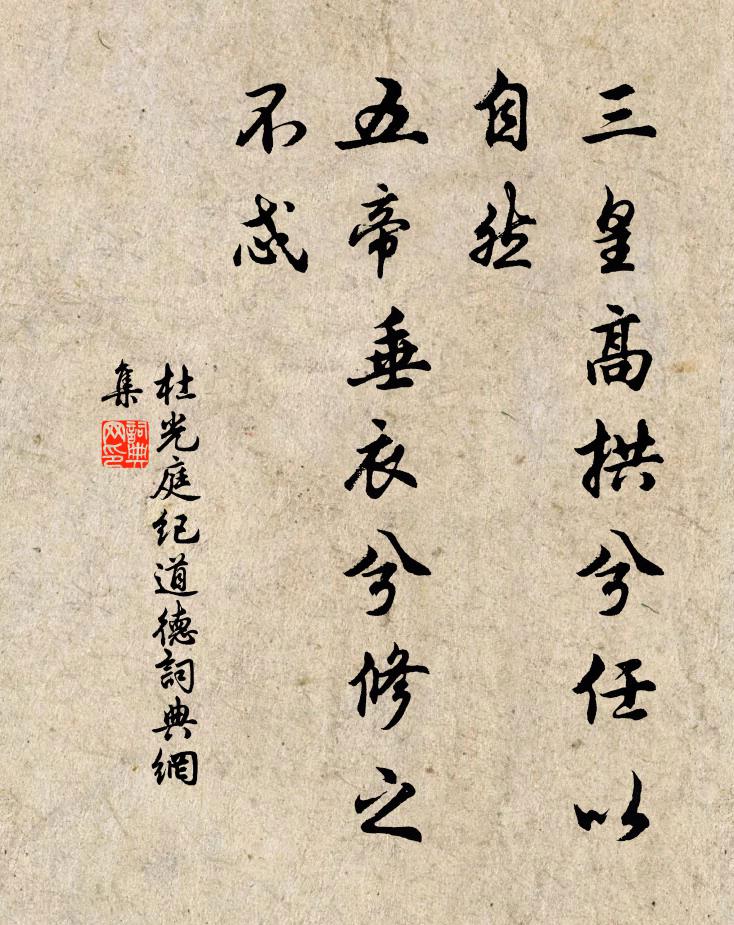 三皇高拱兮任以
自然
五帝垂衣兮修之
不忒
杜光庭纪道德詞典網
集
詞典
网印